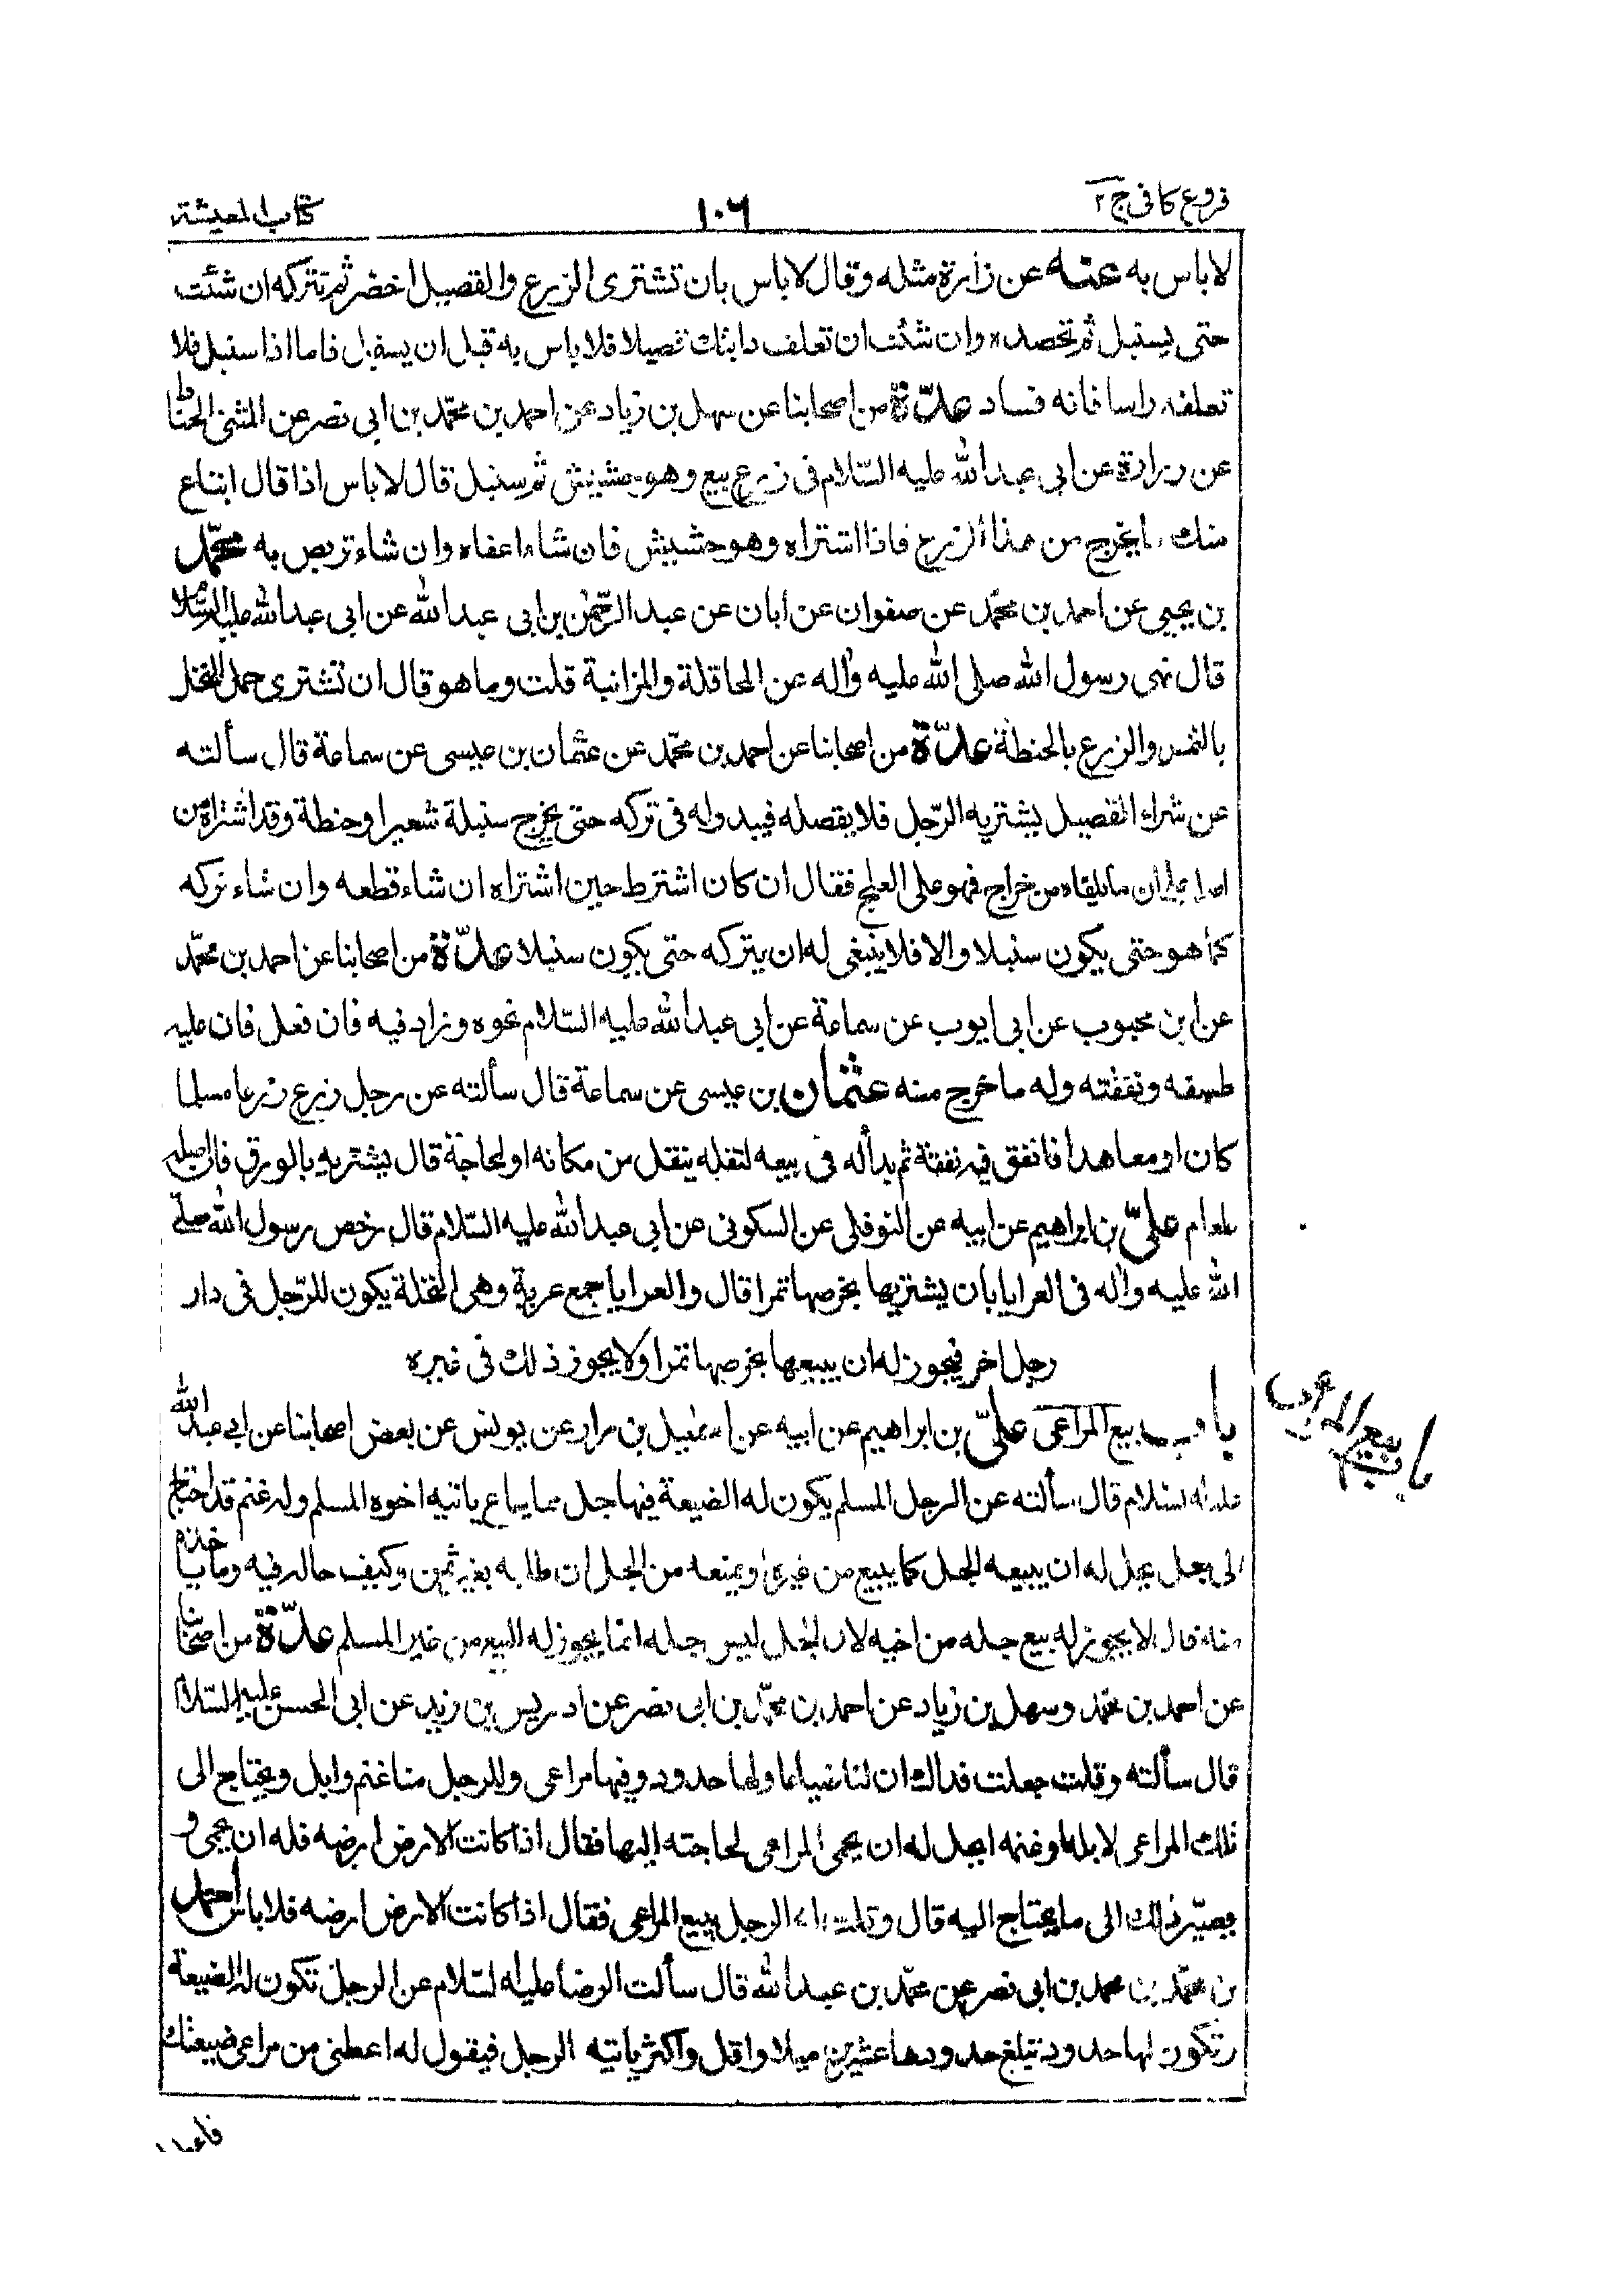 فروع كافى ج ٢
١٠٦
كتاب المعيشة
لا باس به عنه عن زرارة مثله وقال لا باس بان تشترى الزرع والقصيل اخضر ثم تتركه ان شئت
حتى يسنبل ثم تحصده وان شئت ان تعلف دابتك قصيلا فلا باس به قبل ان يسنبل فاما اذا سنبل فلا
تعلفه راسا فانه فساد عدّة من اصحابنا عن سهل بن زياد عن احمد بن محمّد بن ابى نصر عن المثنى الحناط
عن زرارة عن ابى عبد الله عليه السّلام فى زرع بيع وهو حشيش ثم سنبل قال لا باس اذا قال ابتاع
منك ما يخرج من هذا الزرع فاذا اشتراه وهو حشيش فان شاء اعفاه وان شاء تربص به محمّد
بن يحيى عن احمد بن محمّد عن صفوان عن ابان عن عبد الرّحمٰن بن ابى عبد الله عن ابى عبد الله عليه السّلام
قال نهى رسول الله صلى الله عليه واٰله عن المحاقلة والمزابنة قلت وما هو قال ان تشترى حمل النخل
بالتمر والزرع بالحنطة عدّة من اصحابنا عن احمد بن محمّد عن عثمان بن عيسى عن سماعة قال سألته
عن شراء القصيل يشتريه الرّجل فلا يقصله فيبدو له فى تركه حتى يخرج سنبلة شعيرا وحنطة وقد اشتراه من
اصله على ان ما يلقاه من خراج فهو على العلج فقال ان كان اشترط حين اشتراه ان شاء قطعه وان شاء تركه
كما هو حتى يكون سنبلا والا فلا ينبغى له ان يتركه حتى يكون سنبلا عدّة من اصحابنا عن احمد بن محمّد
عن ابن محبوب عن ابى ايوب عن سماعة عن ابى عبد الله عليه السّلام نحوه وزاد فيه فان فعل فان عليه
طسقه ونفقته وله ما خرج منه عثمان بن عيسى عن سماعة قال سألته عن رجل زرع زرعا مسلما
كان او معاهدا فانفق فيه نفقة ثم بدا له فى بيعه لنقله ينتقل من مكانه او لحاجة قال يشتريه بالورق فان اصله
طعام علىّ بن ابراهيم عن ابيه عن النوفلى عن السكونى عن ابى عبد الله عليه السّلام قال رخص رسول الله صلّى
الله عليه واٰله فى العرايا بان يشتريها بخرصها تمرا قال والعرايا جمع عرية وهى النخلة يكون للرّجل فى دار
رجل اخر فيجوز له ان يبيعها بخرصها تمرا ولا يجوز ذلك فى غيره
باب بيع المراعى علىّ بن ابراهيم عن ابيه عن اسمعيل بن مرار عن يونس عن بعض اصحابنا عن ابى عبد الله
عليه السّلام قال سألته عن الرجل المسلم يكون له الضيعة فيها جبل مما يباع ياتيه اخوه المسلم وله غنم قد احتاج
الى جبل يحل له ان يبيعه الجبل كما يبيع من غيره او يمنعه من الجبل ان طلبه بغير ثمن وكيف حاله فيه وما ياخذه
منه قال لا يجوز له بيع جبله من اخيه لان الجبل ليس جبله انما يجوز له البيع من غير المسلم عدّة من اصحابنا
عن احمد بن محمّد وسهل بن زياد عن احمد بن محمّد بن ابى نصر عن ادريس بن زيد عن ابى الحسن عليه السّلام
قال سألته وقلت جعلت فداك ان لنا ضياعا ولها حدود وفيها مراعى وللرجل منا غنم وابل ويحتاج الى
تلك المراعى لابله وغنمه ايحل له ان يحمى المراعى لحاجته اليها فقال اذا كانت الارض ارضه فله ان يحمى و
يصيّر ذلك الى ما يحتاج اليه قال وقلت له الرجل يبيع المراعى فقال اذا كانت الارض ارضه فلا باس احمد
بن محمّد بن محمد بن ابى نصر عن محمّد بن عبد الله قال سألت الرضا عليه السّلام عن الرجل تكون له الضيعة
وتكون لها حدود تبلغ حدودها عشرين ميلا واقل واكثر ياتيه الرجل فيقول له اعطنى من مراعى ضيعتك
باب بيع المراعى